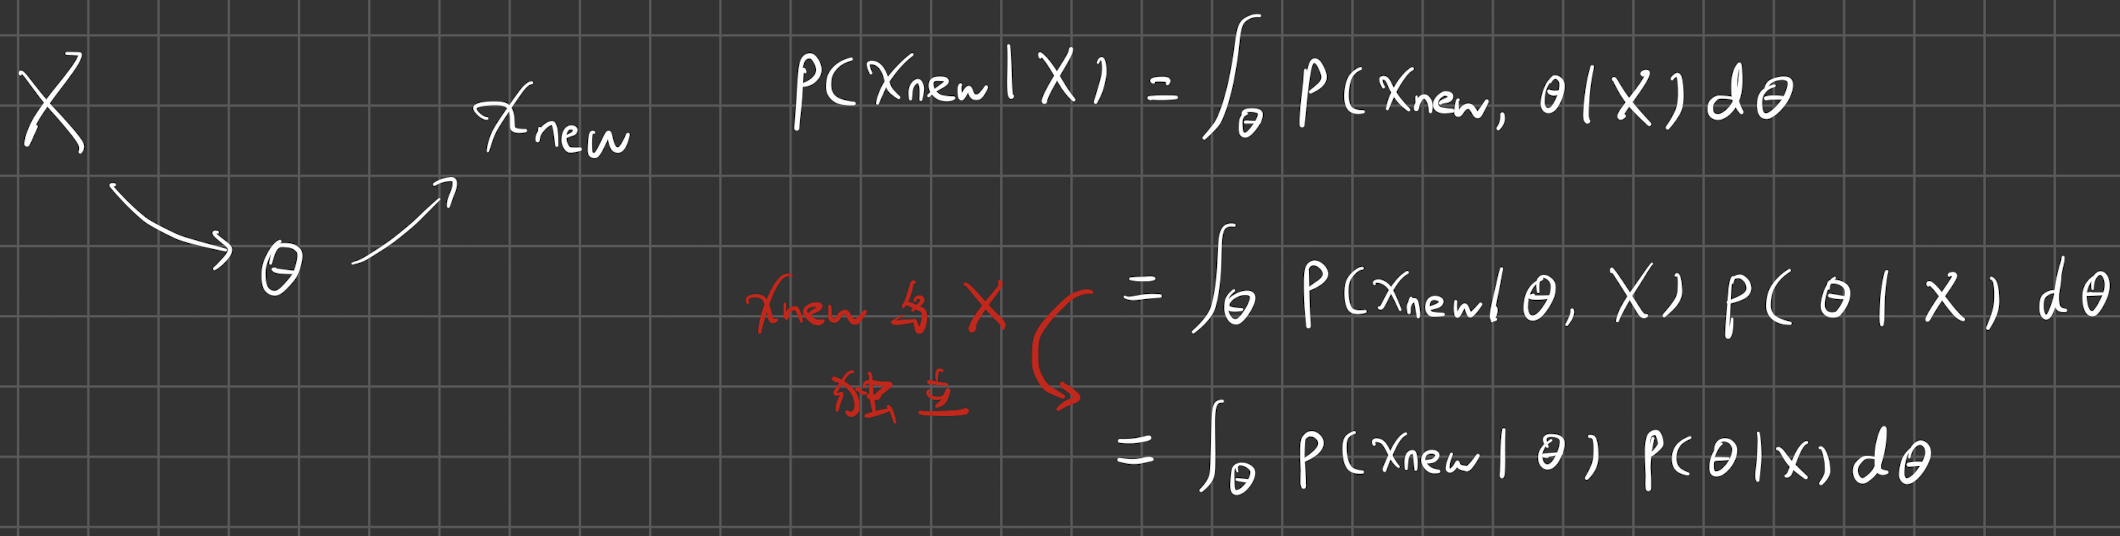 X
x_new
θ
P(x_new | X) = ∫_θ P(x_new, θ | X) dθ
= ∫_θ P(x_new | θ, X) P(θ | X) dθ
x_new 与 X
独立
= ∫_θ P(x_new | θ) P(θ | X) dθ